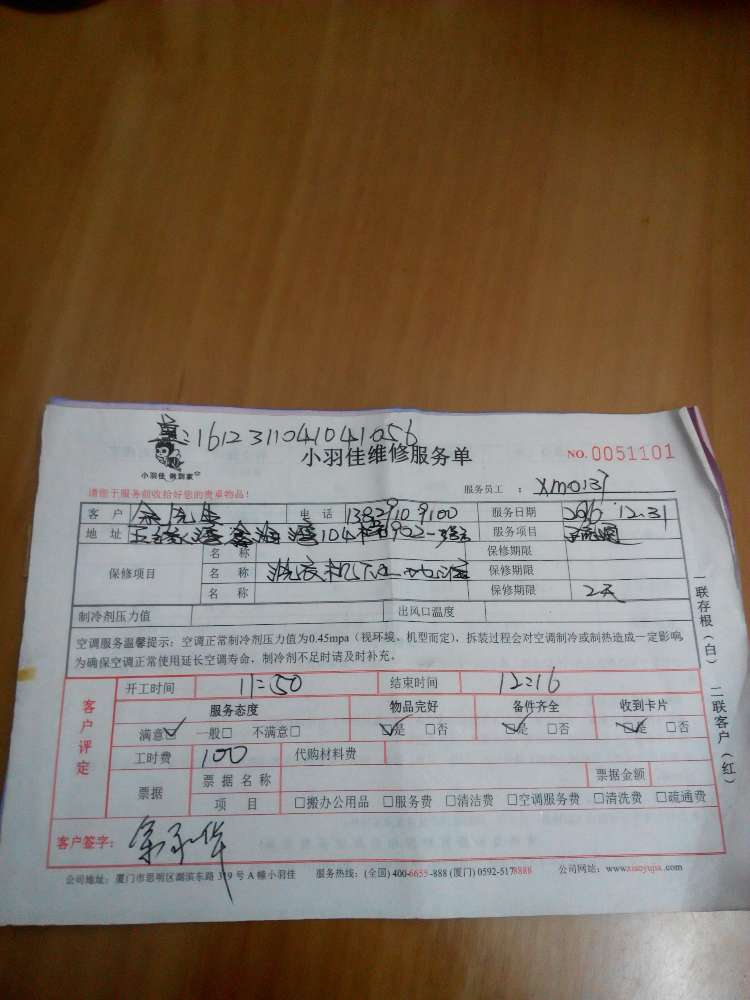 1612311041041056
小羽佳 做到家
小羽佳维修服务单
NO. 0051101
请您于服务前收拾好您的贵重物品！
服务员工： XM0137
客户 余先生 电话 13829109100 服务日期 2016.12.31
地址 鑫海湾104 902 服务项目
保修项目 名称 保修期限
名称 洗衣机下 地漏 保修期限
名称 保修期限 2天
制冷剂压力值 出风口温度
空调服务温馨提示：空调正常制冷剂压力值为0.45mpa（视环境、机型而定），拆装过程会对空调制冷或制热造成一定影响，
为确保空调正常使用延长空调寿命，制冷剂不足时请及时补充。
一联存根（白） 二联客户（红）
客户评定
开工时间 11:50 结束时间 12:16
服务态度 物品完好 备件齐全 收到卡片
满意☑ 一般□ 不满意□ ☑是 □否 ☑是 □否 ☑是 □否
工时费 100 代购材料费
票据 票据名称 票据金额
项目 □搬办公用品 □服务费 □清洁费 □空调服务费 □清洗费 □疏通费
客户签字：
公司地址：厦门市思明区湖滨东路319号A幢小羽佳 服务热线：(全国) 400-6655-888 (厦门) 0592-5178888 公司网址：www.xiaoyujia.com